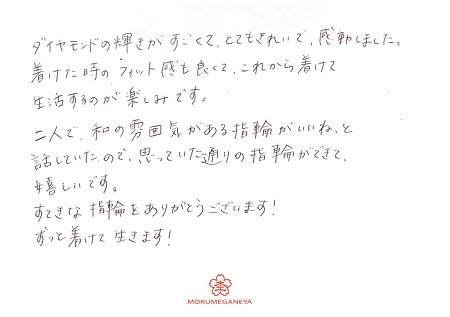 ダイヤモンドの輝きがすごくて、とてもきれいで、感動しました。
着けた時のフィット感も良くて、これから着けて
生活するのが楽しみです。
二人で、和の雰囲気がある指輪がいいね、と
話していたので、思っていた通りの指輪ができて、
嬉しいです。
すてきな指輪をありがとうございます!
ずっと着けて生きます!
MOKUMEGANEYA